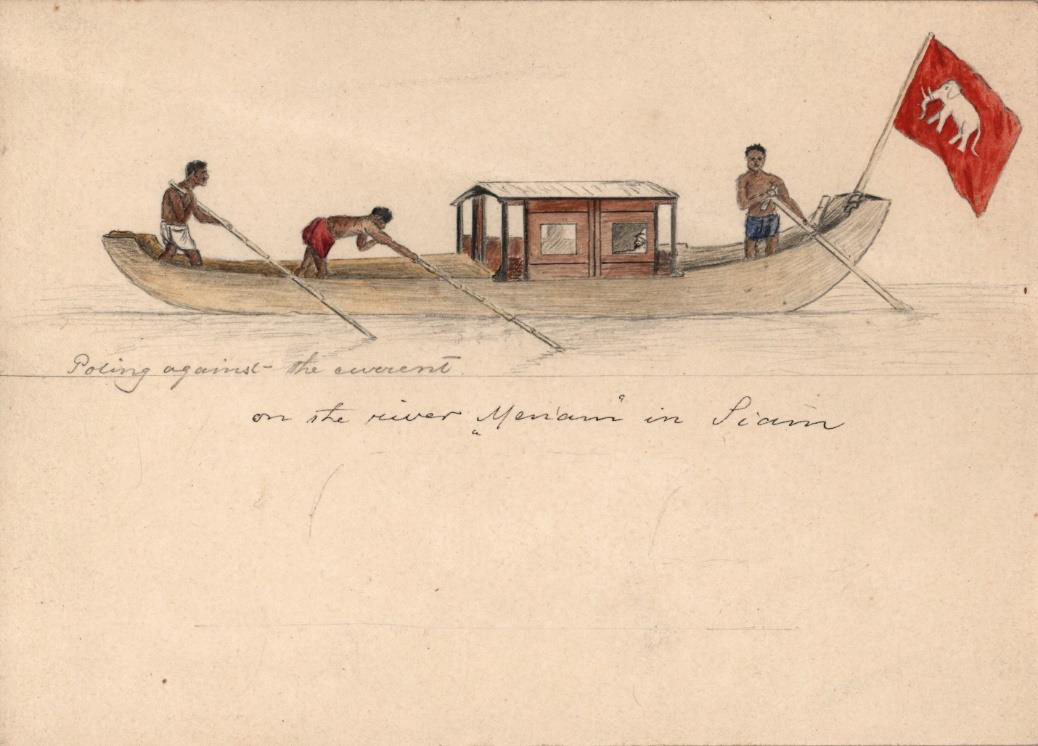 Poling against the current
on the river "Menam" in Siam